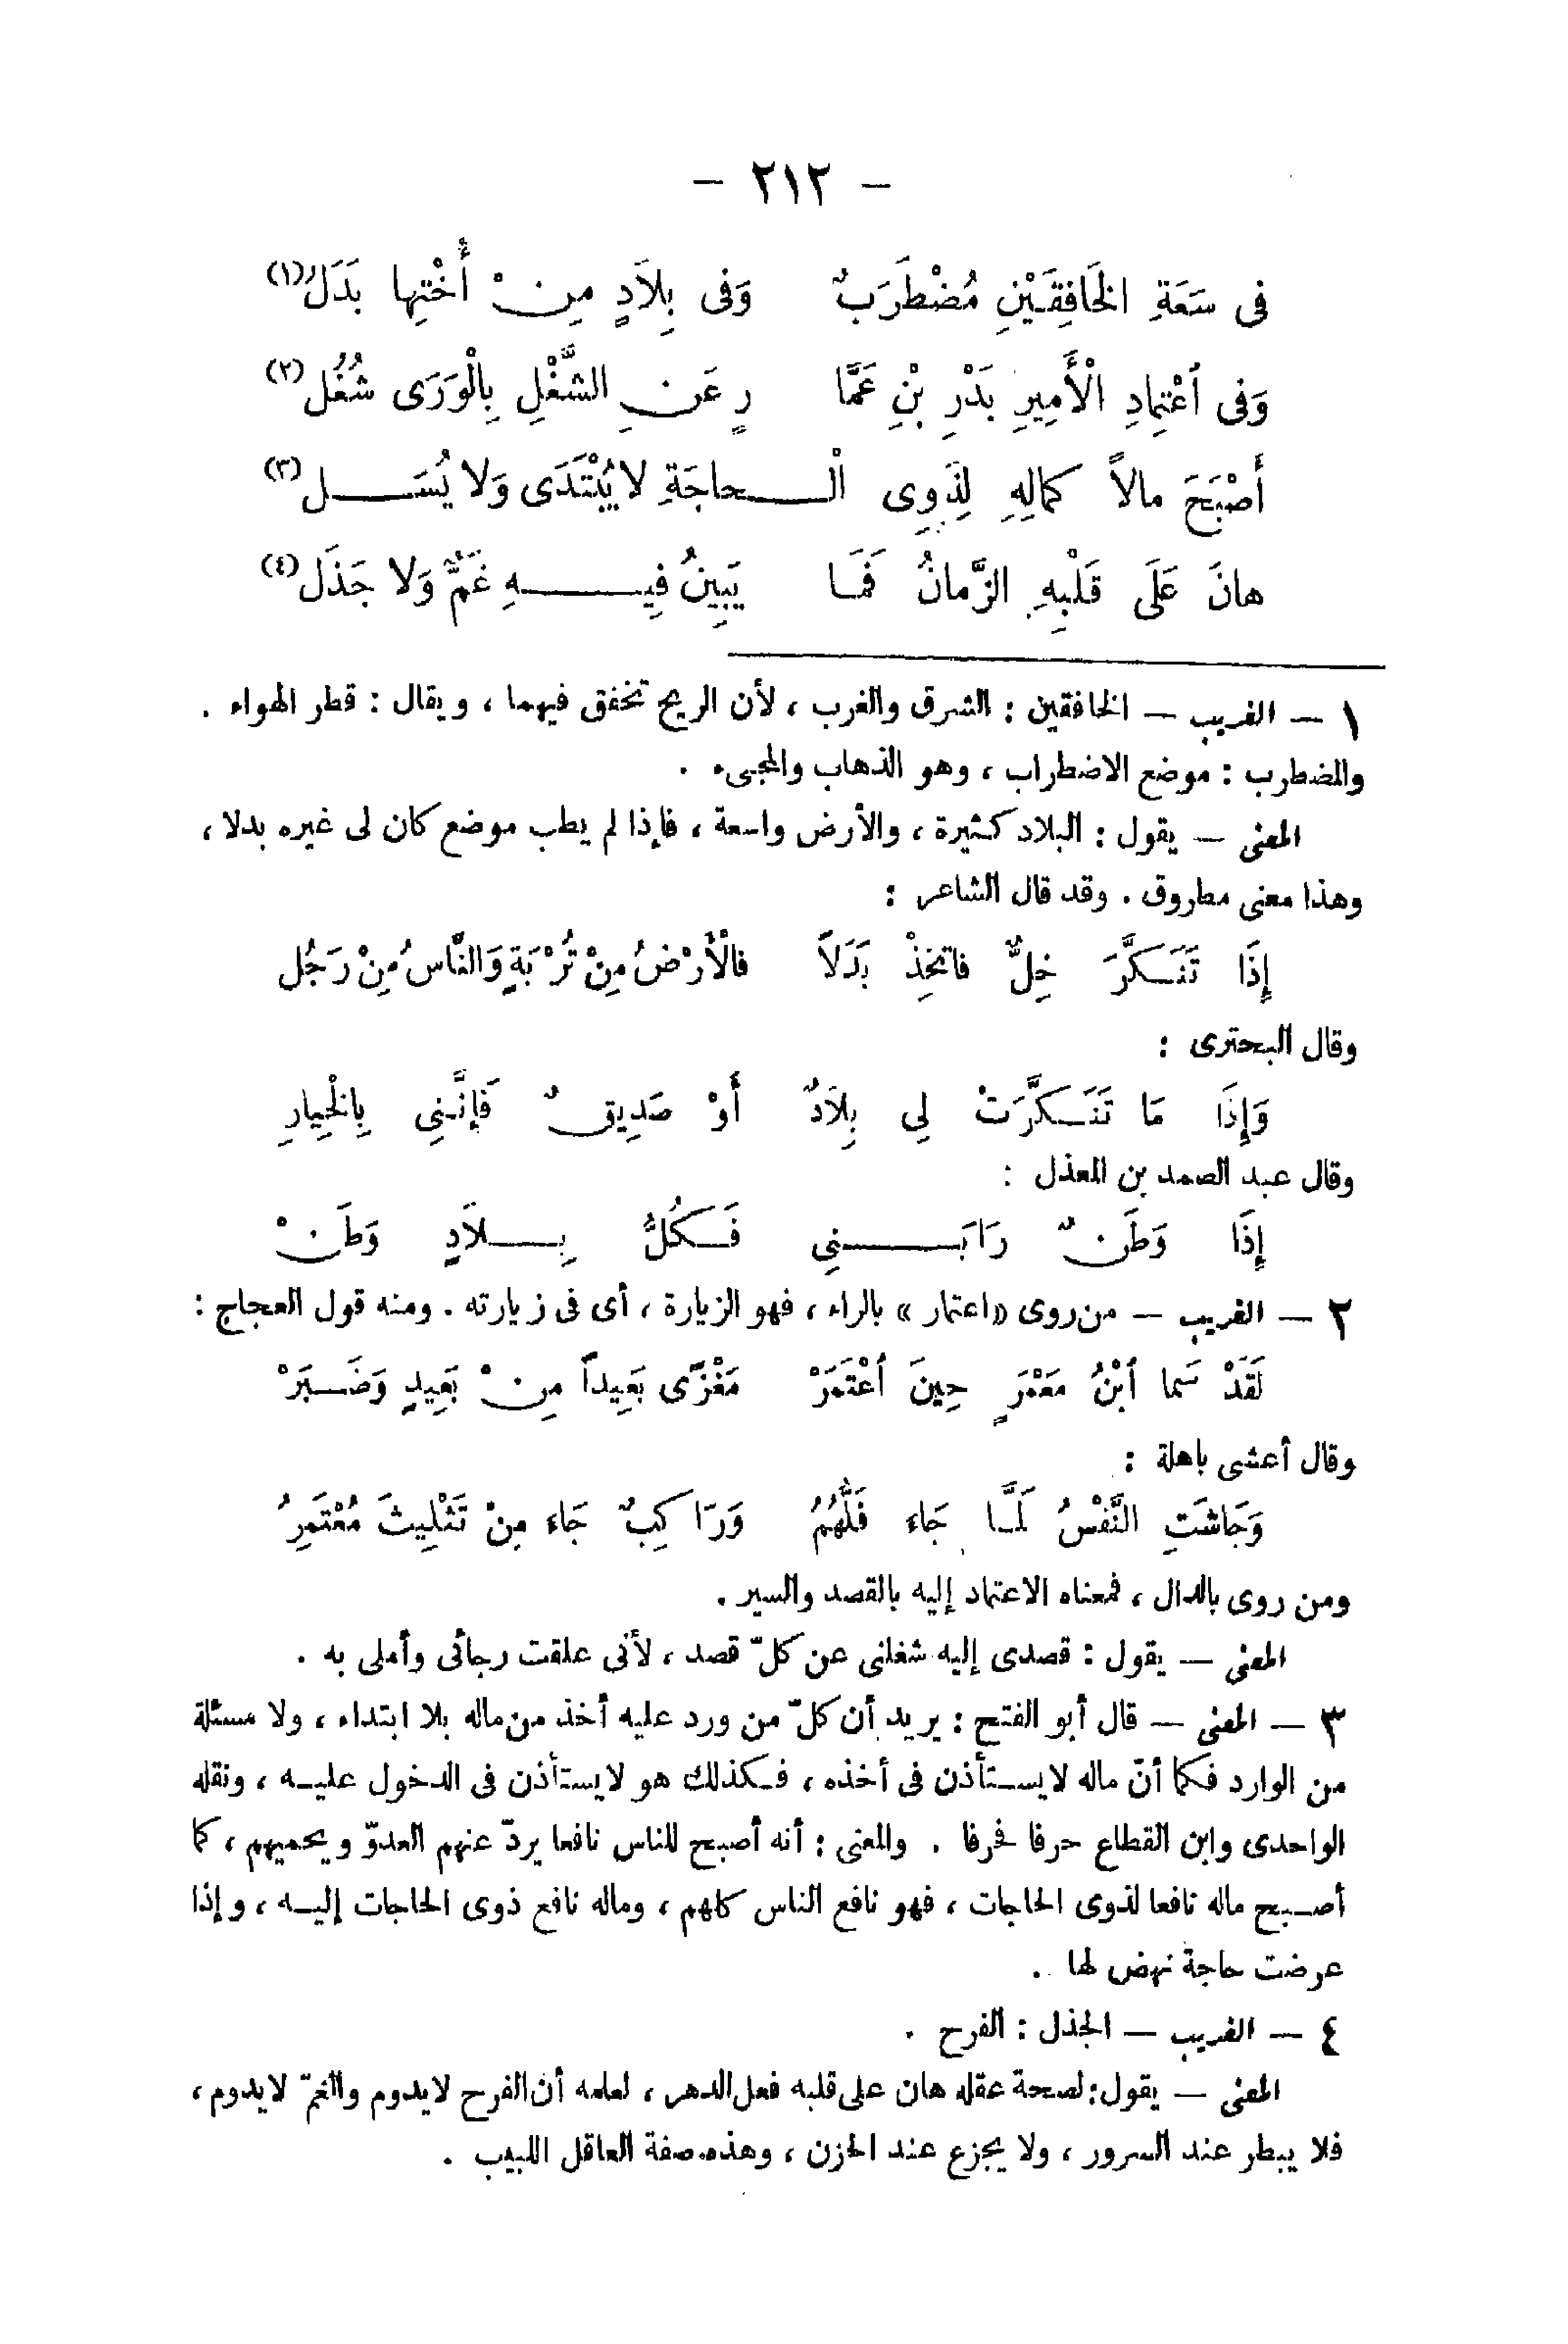 – ٢١٢ –
فى سَعَةِ الْخَافِقَيْنِ مُضْطَرَبٌ وَفى بِلاَدٍ مِنْ أُخْتِها بَدَلُ (١)
وَفى اُعْتِمادِ الْأَمِيرِ بَدْرِ بْنِ عَمَّا رٍ عَنِ الشُّغْلِ بِالْوَرَى شُغُل (٢)
أَصْبَحَ مالاً كمالِهِ لِذَوِى الْـحاجَةِ لا يُبْتَدَى وَلا يُسَـل (٣)
هانَ عَلَى قَلْبِهِ الزَّمانُ فَمَـا يَبِينُ فِيـهِ غَمٌّ وَلا جَذَل (٤)
١ – الغريب – الخافقين : الشرق والغرب ، لأن الريح تخفق فيهما ، ويقال : قطر الهواء .
والمضطرب : موضع الاضطراب ، وهو الذهاب والمجىء .
المعنى – يقول : البلاد كثيرة ، والأرض واسعة ، فإذا لم يطب موضع كان لى غيره بدلا ،
وهذا معنى مطروق . وقد قال الشاعر :
إِذَا تَنَـكَّرَ خِلٌّ فاتخِذْ بَدَلاً فالْأَرْضُ مِنْ تُرْبَةٍ وَالنَّاسُ مِنْ رَجُل
وقال البحترى :
وَإِذَا مَا تَنَـكَّرَتْ لِى بِلاَدٌ أَوْ صَدِيقٌ فَإِنَّـنِى بِالْخِيارِ
وقال عبد الصمد بن المعذل :
إِذَا وَطَنٌ رَابَـنِى فَـكُلُّ بِـلاَدٍ وَطَنْ
٢ – الغريب – من روى «اعتمار» بالراء ، فهو الزيارة ، أى فى زيارته . ومنه قول العجاج :
لَقَدْ سَما اُبْنُ مَعْمَرٍ حِينَ اُعْتَمَرْ مَغْزًى بَعِيداً مِنْ بَعِيدٍ وَضَـبَرْ
وقال أعشى باهلة :
وَجَاشَتِ النَّفْسُ لَمَّـا جَاءَ فَلُّهُمُ وَرَاكِبٌ جَاءَ مِنْ تَثْلِيثَ مُعْتَمِرُ
ومن روى بالدال ، فمعناه الاعتماد إليه بالقصد والسير .
المعنى – يقول : قصدى إليه شغلنى عن كلّ قصد ، لأنى علقت رجائى وأملى به .
٣ – المعنى – قال أبو الفتح : يريد أن كلّ من ورد عليه أخذ من ماله بلا ابتداء ، ولا مسئلة
من الوارد فـكما أنّ ماله لا يسـتأذن فى أخذه ، فـكذلك هو لا يستأذن فى الدخول عليـه ، ونقله
الواحدى وابن القطاع حرفا فحرفا . والمعنى : أنه أصبح للناس نافعا يردّ عنهم العدوّ ويحميهم ، كما
أصـبح ماله نافعا لذوى الحاجات ، فهو نافع الناس كلهم ، وماله نافع ذوى الحاجات إليـه ، وإذا
عرضت حاجة نهض لها .
٤ – الغريب – الجذل : الفرح .
المعنى – يقول : لصحة عقله هان على قلبه فعل الدهر ، لعلمه أن الفرح لا يدوم والغمّ لا يدوم ،
فلا يبطر عند السرور ، ولا يجزع عند الحزن ، وهذه صفة العاقل اللبيب .